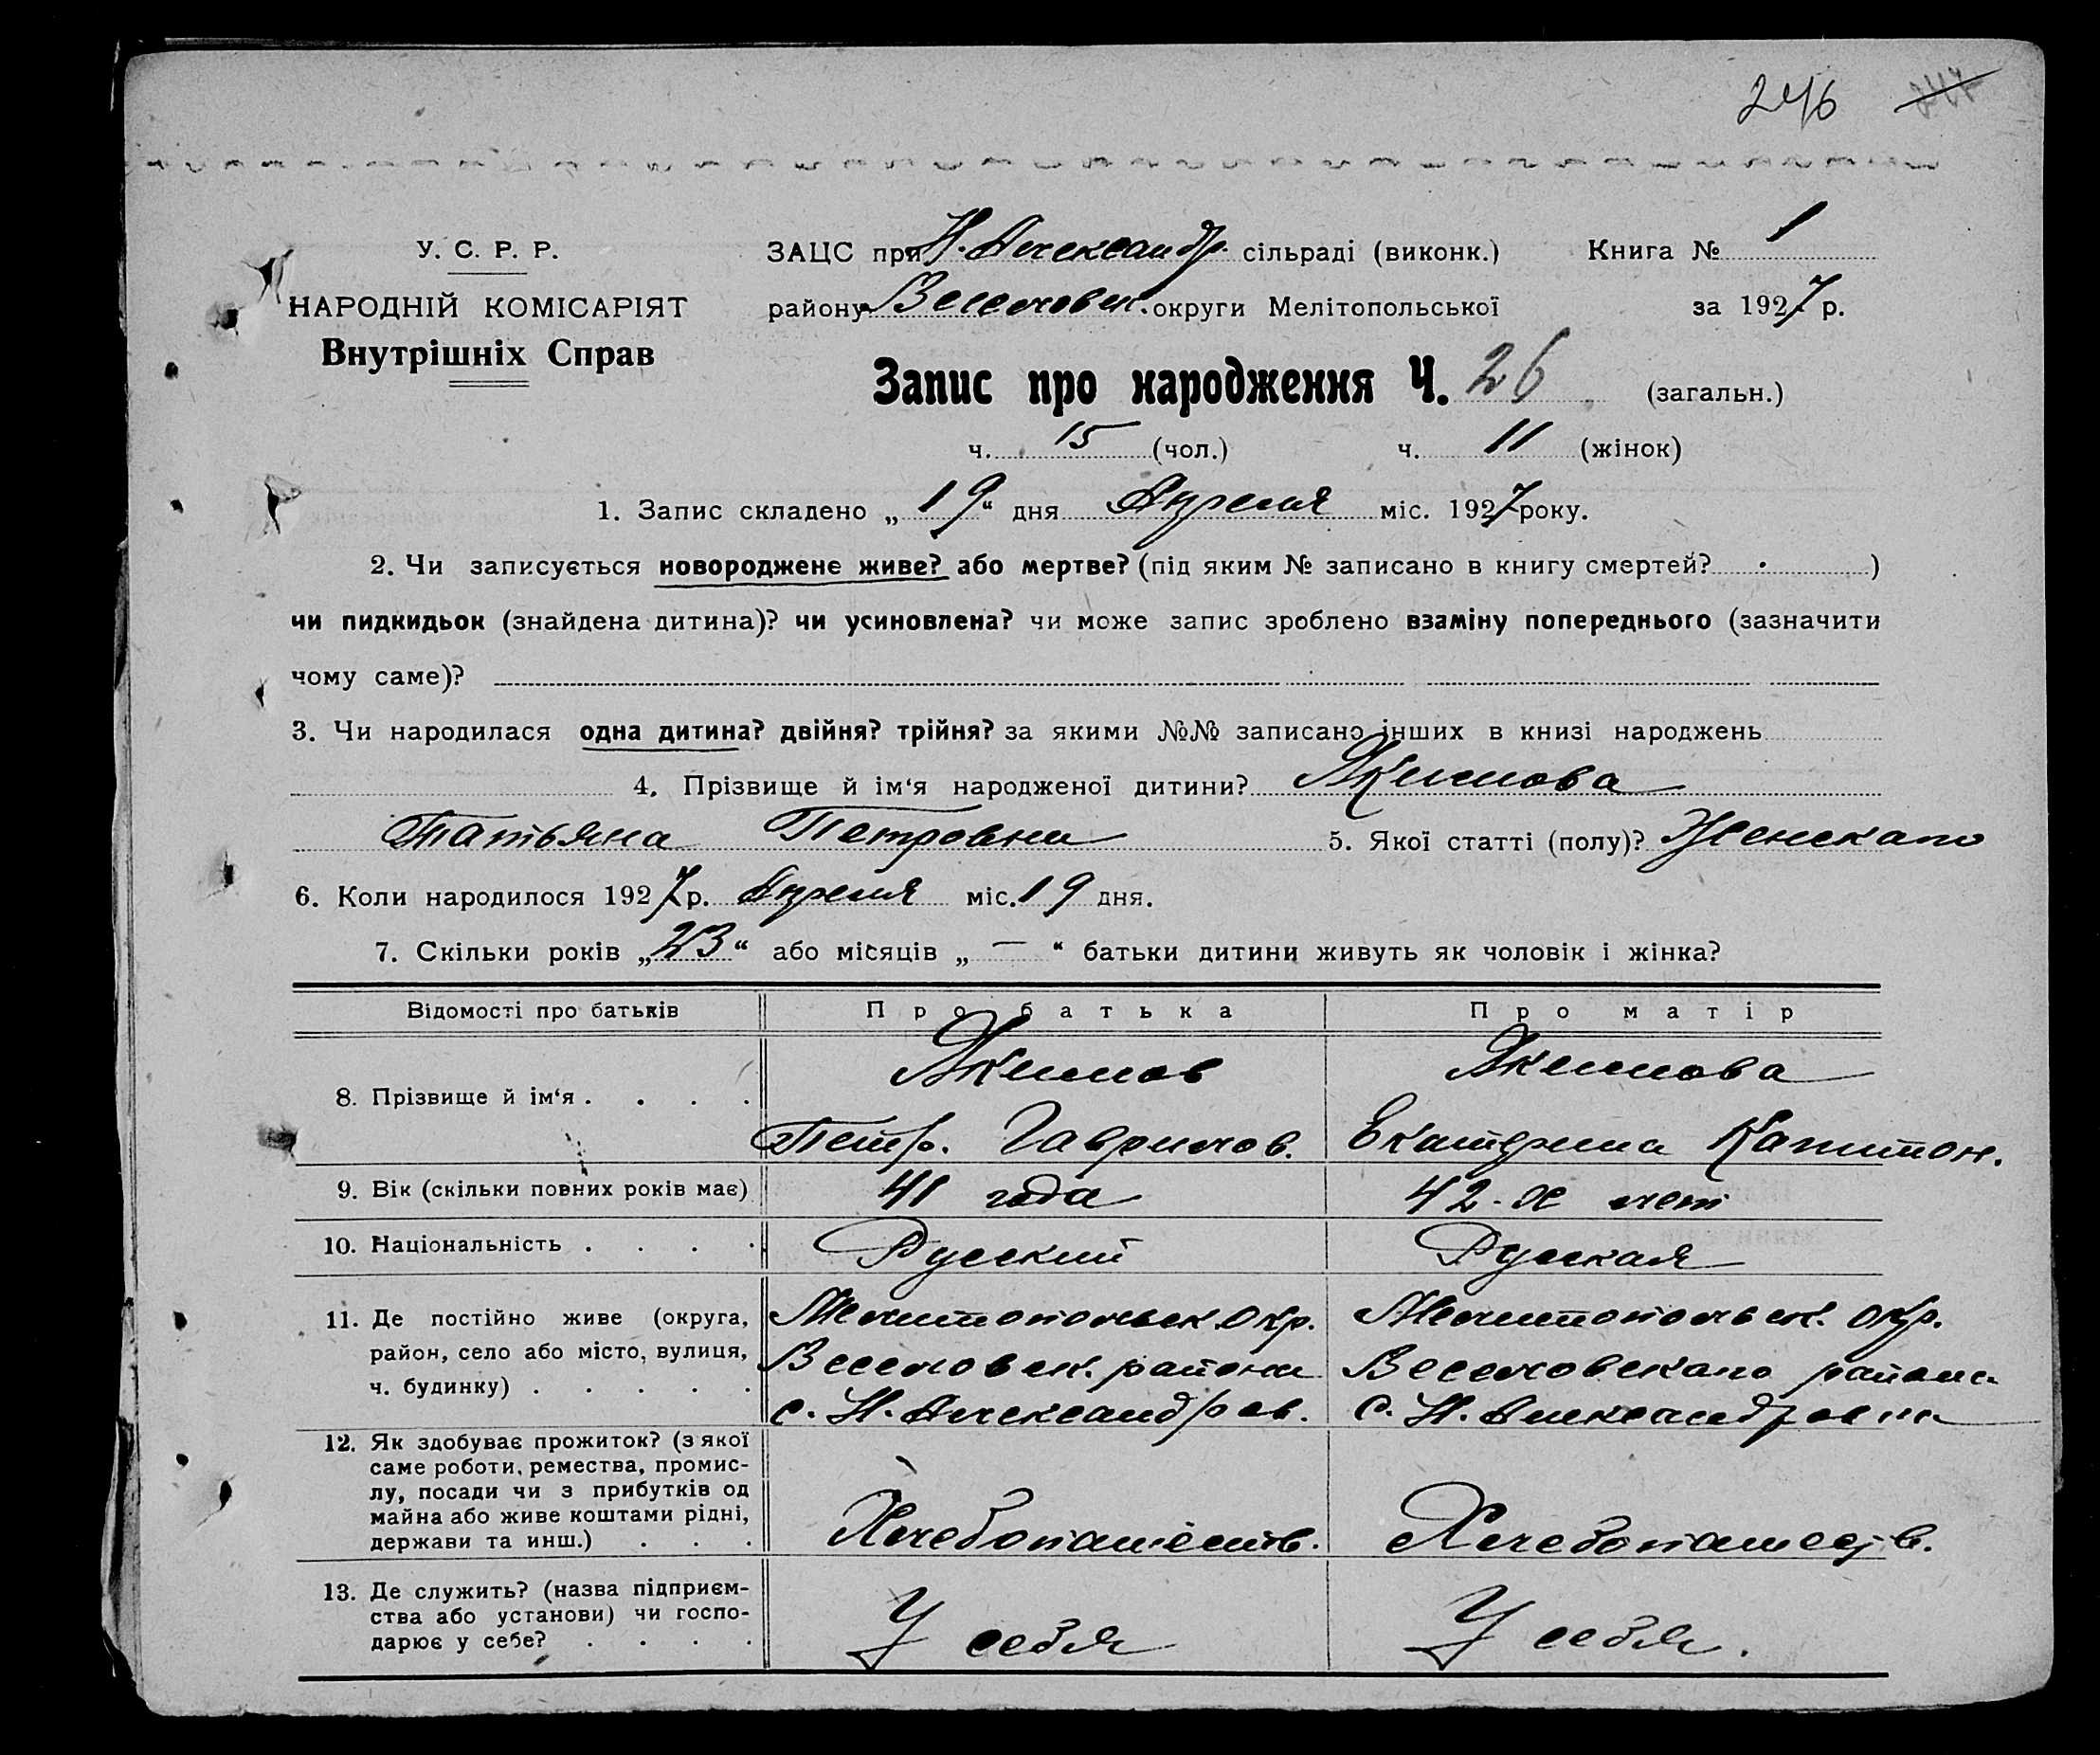 246
У. С. Р. Р.
НАРОДНІЙ КОМІСАРІЯТ
Внутрішніх Справ
ЗАЦС при Н. Александр. сільраді (виконк.) Книга № 1
району Веселовск. округи Мелітопольської за 1927 р.
Запис про народження Ч. 26 (загальн.)
ч. 15 (чол.) ч. 11 (жінок)
1. Запис складено „19“ дня Апреля міс. 1927 року.
2. Чи записується новороджене живе? або мертве? (під яким № записано в книгу смертей? )
чи пидкидьок (знайдена дитина)? чи усиновлена? чи може запис зроблено взаміну попереднього (зазначити
чому саме)?
3. Чи народилася одна дитина? двійня? трійня? за якими №№ записано інших в книзі народжень
4. Прізвище й ім‘я народженої дитини? Якимова
Татьяна Петровна 5. Якої статті (полу)? Женскаго
6. Коли народилося 1927 р. Апреля міс. 19 дня.
7. Скільки років „23“ або місяців „—“ батьки дитини живуть як чоловік і жінка?
Відомості про батьків Про батька Про матір
8. Прізвище й ім‘я . . . . Якимов Якимова
Петр. Гаврилов. Екатерина Капитон.
9. Вік (скільки повних років має) 41 года 42-х лет
10. Національність . . . . Русский Руская
11. Де постійно живе (округа, Мелитопольск. окр. Мелитопольск. окр.
район, село або місто, вулиця, Веселовск. района Веселовскаго района
ч. будинку) . . . . . с. Н. Александров. с. Н. Александровка
12. Як здобуває прожиток? (з якої
саме роботи, ремества, промис-
лу, посади чи з прибутків од
майна або живе коштами рідні, Хлебопашеств. Хлебопашеств.
держави та инш.) . . .
13. Де служить? (назва підприєм-
ства або установи) чи госпо- У себя У себя.
дарює у себе? . . . .